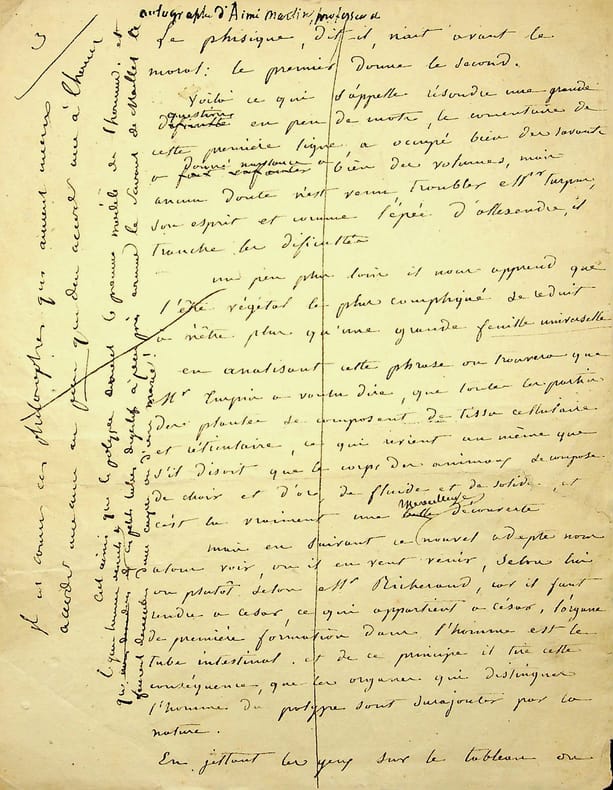 autographe d'Aimé martin, professeur
3
Le phisique, dit-il, nait avant le
moral: le premier donne le second.
Voila ce qui s'appelle résoudre une grande
question
difficulté en peu de mots, le comentaire de
cette première ligne, a occupé bien des savants
donné naissance a
a fait enfanter bien des volumes, mais
aucun doute n'est venu troubler Mr turpin,
son esprit et comme l'épée d'allexandre, il
tranche les dificultés
un peu plus loin il nous apprend que
l'être végétal le plus compliqué se reduit
a n'être plus qu'une grande feuille universelle
en analisant cette phrase on trouvera que
Mr Turpin a voulu dire, que toutes les parties
des plantes se composent de tissu cellulaire
et réticulaire, ce qui revient au même que
s'il disoit que le corps des animaux se compose
de chair et d'os, de fluide et de solide, et
merveilleuse
c'est la vraiment une belle découverte
mais en suivant ce nouvel adepte nous
allons voir, ou il en veut venir, selon lui
ou plutôt selon Mr Richerand, car il faut
rendre a césar, ce qui appartient a césar, l'organe
de première formation dans l'homme est le
tube intestinal. et de ce principe il tire cette
conséquence, que les organes qui distinguent
l'homme du polype sont surajoutés par la
nature.
En jettant les yeux sur le tableau ou
Il est comme ces philosophes qui aiment mieux
accorder une ame au que d'en accorder une à l'homme
C'est ainsi que le polype devient le premier modèle de l'homme, et
que nous de ces petits tubes digestifs à peu près comme le savant de Maillet le
faisait descendre d'une carpe ou d'une morue!